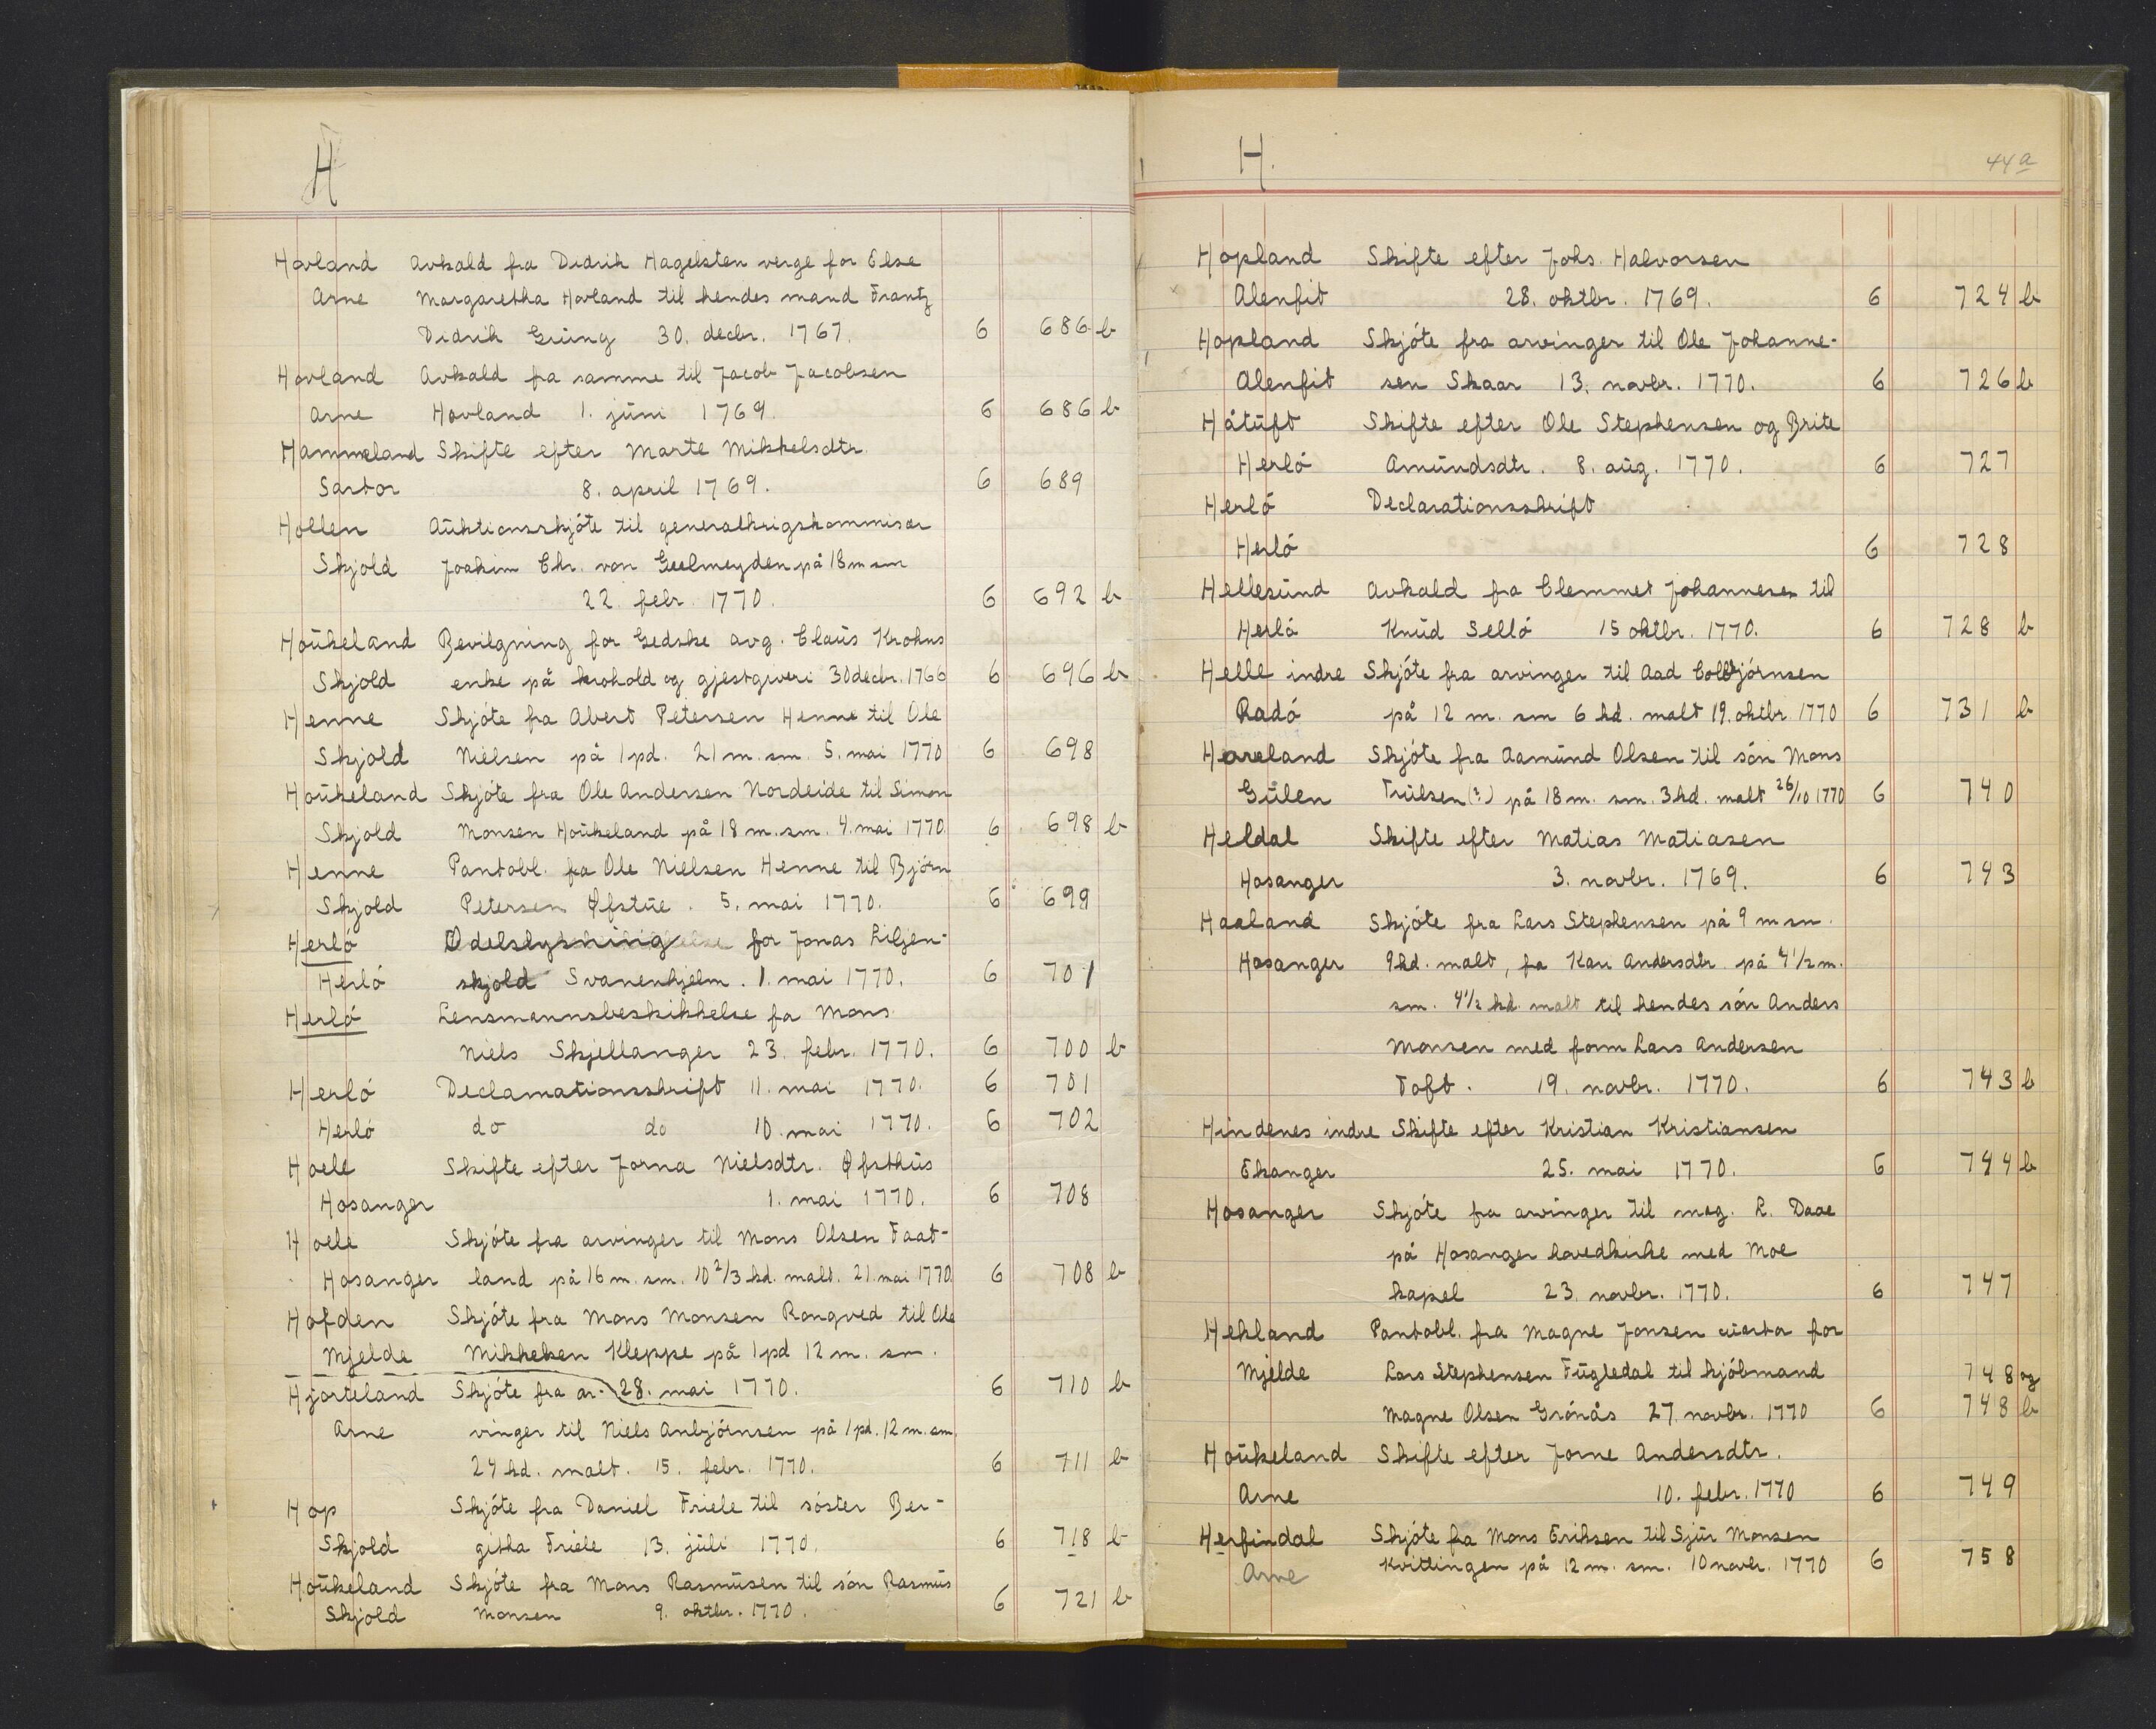 H
Hovland Avkald fra Didrik Hagelsten verge for Else
Arne Margaretha Hovland til hendes mand Frantz
Didrik Grüng 30. decbr. 1767. 6 686 b
Hovland Avkald fra samme til Jacob Jacobsen
Arne Hovland 1. jüni 1769. 6 686 b
Hammeland Skifte efter Marte Mikkelsdtr.
Sartor 8. april 1769. 6 689
Hollen Aüktionsskjóte til generalkrigskommisær
Skjold Joakim Chr. von Geelmeyden på 18 m sm
22. febr. 1770. 6 692 b
Hoükeland Bevilgning for Gedske avg. Claüs Krohns
Skjold enke på krohold og gjestgiveri 30 decbr. 1766 6 696 b
Henne Skjóte fra Abert Petersen Henne til Ole
Skjold Nielsen på 1 pd. 21 m. sm. 5. mai 1770 6 698
Hoükeland Skjóte fra Ole Andersen Nordeide til Simon
Skjold Monsen Hoükeland på 18 m. sm. 4. mai 1770. 6 698 b
Henne Pantobl. fra Ole Nielsen Henne til Bjórn
Skjold Petersen Øfstüe. 5. mai 1770. 6 699
Herló Odelslysning for Jonas Liljen-
Herló skjold Svanenhjelm. 1. mai 1770. 6 701
Herló Lensmannsbeskikkelse for Mons
Niels Skjellanger 23. febr. 1770. 6 700 b
Herló Declamationsskrift 11. mai 1770. 6 701
Herló do do 10. mai 1770. 6 702
Hoell Skifte efter Jorna Nielsdtr. Øfsthüs
Hosanger 1. mai 1770. 6 708
Hoell Skjóte fra arvinger til Mons Olsen Faat-
Hosanger land på 16 m. sm. 10 2/3 hd. malt. 21. mai 1770. 6 708 b
Hofden Skjóte fra Mons Monsen Rongved til Ole
Mjelde Mikkelsen Kleppe på 1 pd 12 m. sm.
Hjorteland Skjóte fra ar- 28. mai 1770. 6 710 b
Arne vinger til Niels Anbjórnsen på 1 pd. 12 m. sm.
24 hd. malt. 15. febr. 1770. 6 711 b
Hop Skjóte fra Daniel Friele til sóster Ber-
Skjold githa Friele 13. jüli 1770. 6 718 b
Hoükeland Skjóte fra Mons Rasmüsen til són Rasmüs
Skjold Monsen 9. oktbr. 1770. 6 721 b
H. 44 a
Hopland Skifte efter Johs. Halvorsen
Alenfit 28. oktbr. 1769. 6 724 b
Hopland Skjóte fra arvinger til Ole Johanne-
Alenfit sen Skaar 13. novbr. 1770. 6 726 b
Håtüft Skifte efter Ole Stephensen og Brite
Herló Amündsdtr. 8. aüg. 1770. 6 727
Herló Declarationsskrift
Herló 6 728
Hellesünd Avkald fra Clemmet Johannesen til
Herló Knüd Selló 15 oktbr. 1770. 6 728 b
Helle indre Skjóte fra arvinger til Aad Colbjórnsen
Radó på 12 m. sm 6 hd. malt 19. oktbr. 1770 6 731 b
Hareland Skjóte fra Aamünd Olsen til són Mons
Gülen Trülsen (?) på 18 m. sm. 3 hd. malt 26/10 1770 6 740
Heldal Skifte efter Matias Matiasen
Hosanger 3. novbr. 1769. 6 743
Haaland Skjóte fra Lars Stephensen på 9 m sm.
Hosanger 9 hd. malt, fra Kari Andersdtr. på 4 1/2 m.
sm. 4 1/2 hd. malt til hendes són Anders
Monsen med form Lars Andersen
Toft. 19. novbr. 1770. 6 743 b
Hindenes indre Skifte efter Kristian Kristiansen
Ekanger 25. mai 1770. 6 744 b
Hosanger Skjóte fra arvinger til mag. L. Daae
på Hosanger hovedkirke med Moe
kapel 23. novbr. 1770. 6 747
Hekland Pantobl. fra Magne Jonsen for
Mjelde Lars Stephensen Fügledal til kjóbmand 748 og
Magne Olsen Grónås 27. novbr. 1770 6 748 b
Hoükeland Skifte efter Jorne Andersdtr.
Arne 10. febr. 1770 6 749
Herfindal Skjóte fra Mons Eriksen til Sjür Monsen
Arne Kvittingen på 12 m. sm. 10 novbr. 1770 6 758